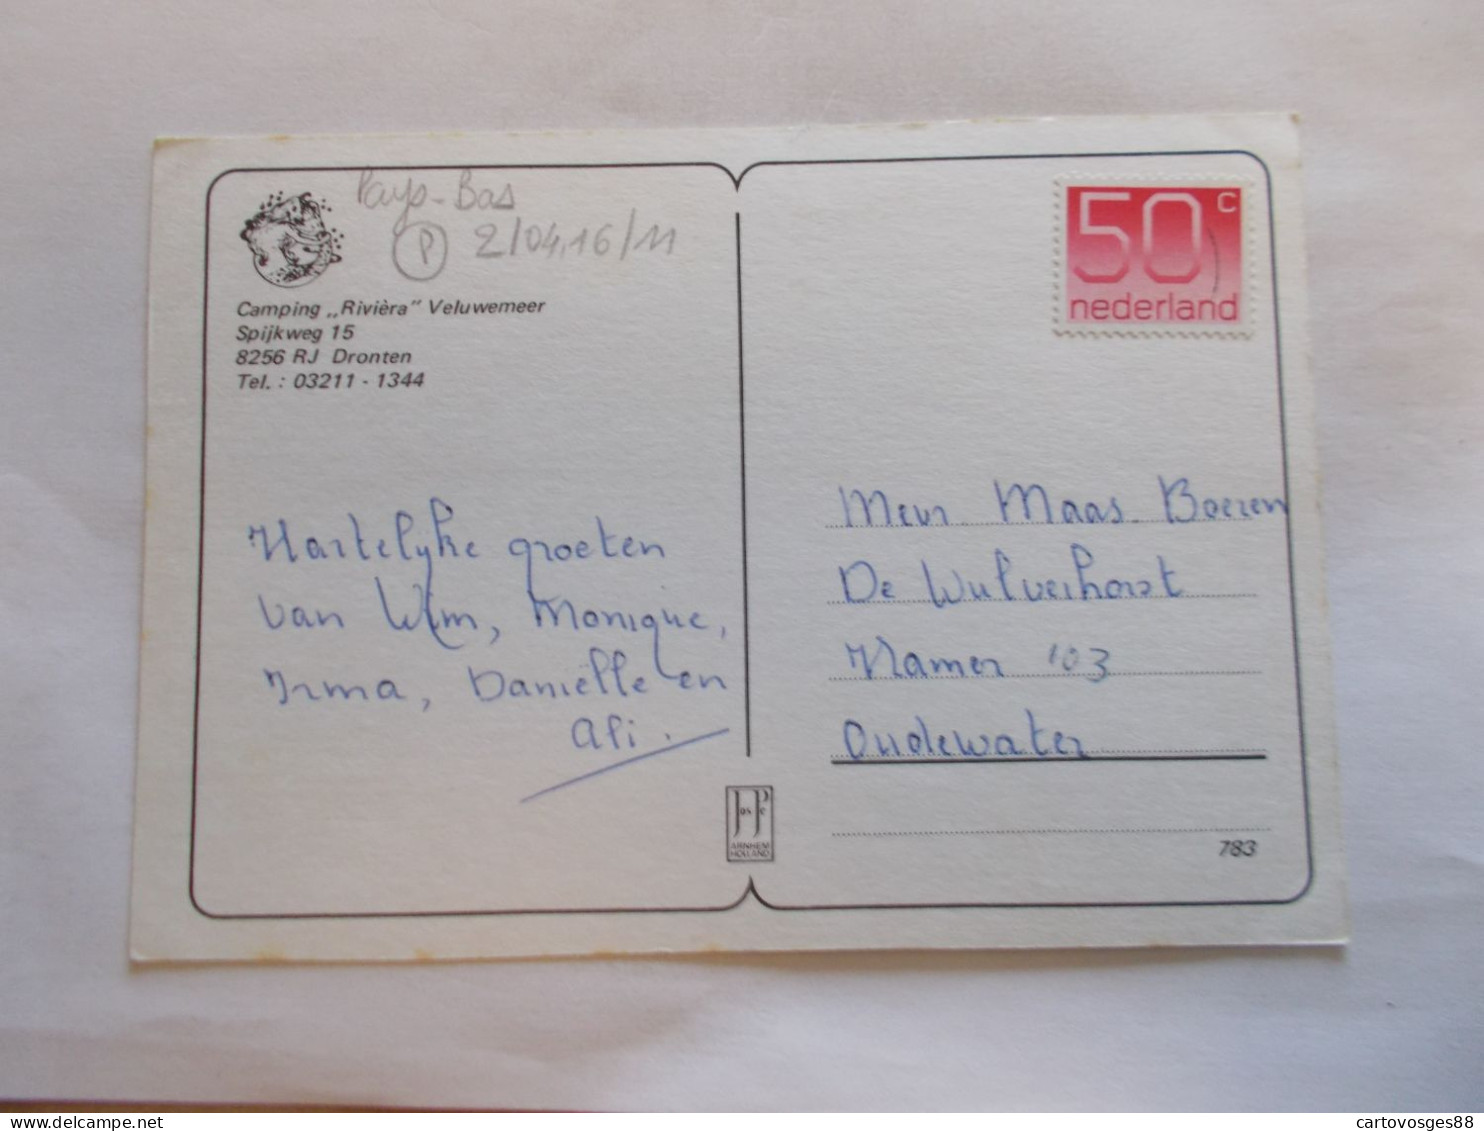 Pays-Bas
P 2/04,16/11
Camping „Rivièra” Veluwemeer
Spijkweg 15
8256 RJ Dronten
Tel. : 03211 - 1344
Hartelijke groeten
van Wim, Monique,
Irma, Daniëlle en
Ali.
50 c
nederland
Mevr. Maas. Boeren
De Wulverhorst
Kamer 103
Oudewater
Jos Pé
ARNHEM
HOLLAND
783
delcampe.net
cartovosges88